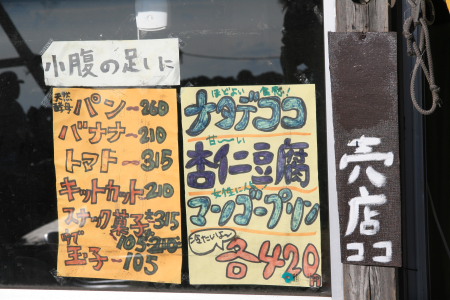 小腹の足しに
天然酵母パン～260
バナナ～210
トマト～315
キットカット210
スナック菓子～315
玉子～105
ほどよい食感!
ナタデココ
甘～い
杏仁豆腐
女性に人気
マンゴープリン
冷たいよ～
各420
売店
ココ